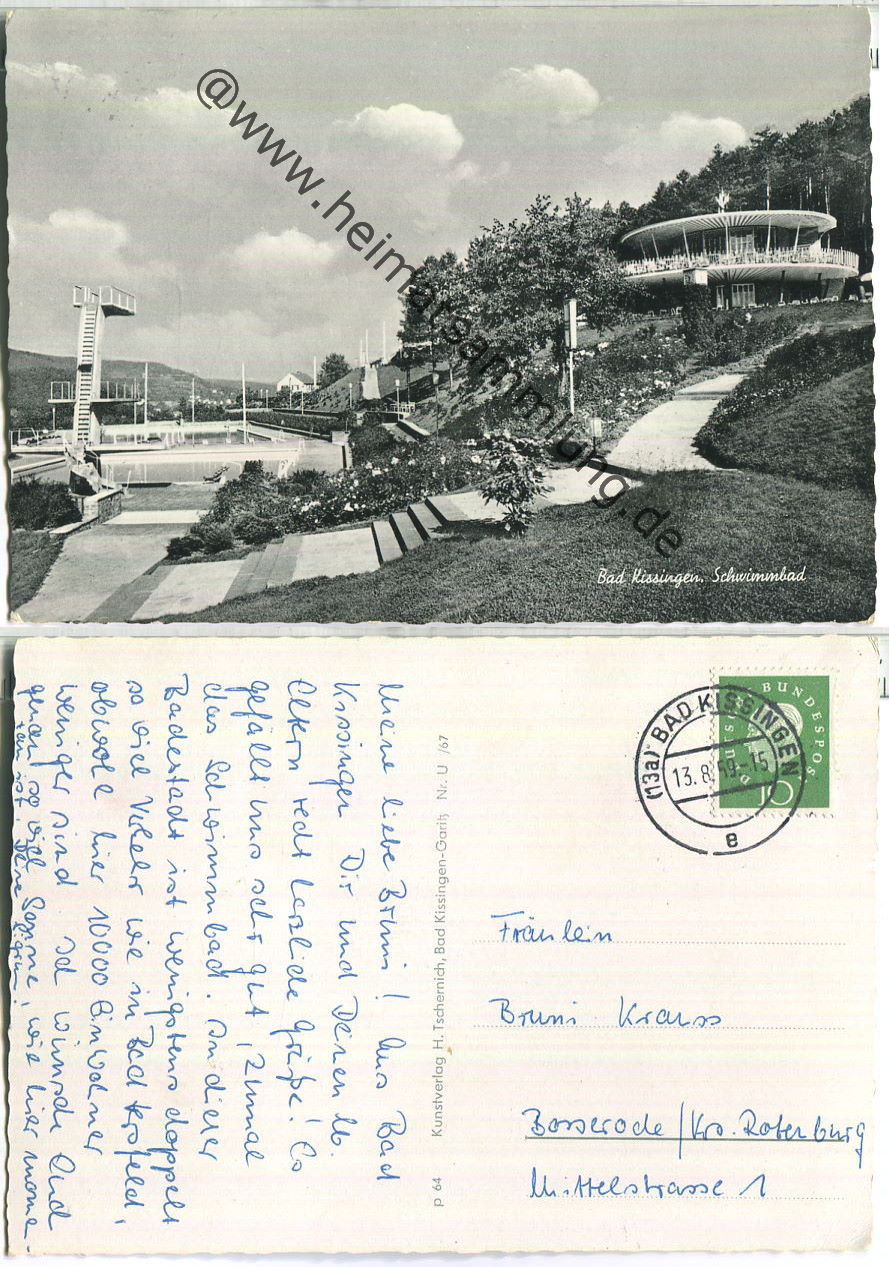 @www.heimatsammlung.de
Bad Kissingen. Schwimmbad
Meine liebe Bruni! Aus Bad
Kissingen Dir und Deinen lb.
Eltern recht herzliche Grüße! Es
gefällt uns sehr gut, zumal
das Schwimmbad. In dieser
Badestadt ist wenigstens doppelt
so viel Verkehr wie in Bad Hersfeld,
obwohl hier 10000 Einwohner
weniger sind. Ich wünsche Euch
genau so viel Sonne, wie hier momen-
tan ist. Deine
Kunstverlag H. Tschernich, Bad Kissingen-Garitz Nr. U /67
P 64
(13a) BAD KISSINGEN
13.8.59-15
e
DEUTSCHE BUNDESPOST
10
Fräulein
Bruni Krauss
Bosserode/Krs. Rotenburg
Mittelstrasse 1